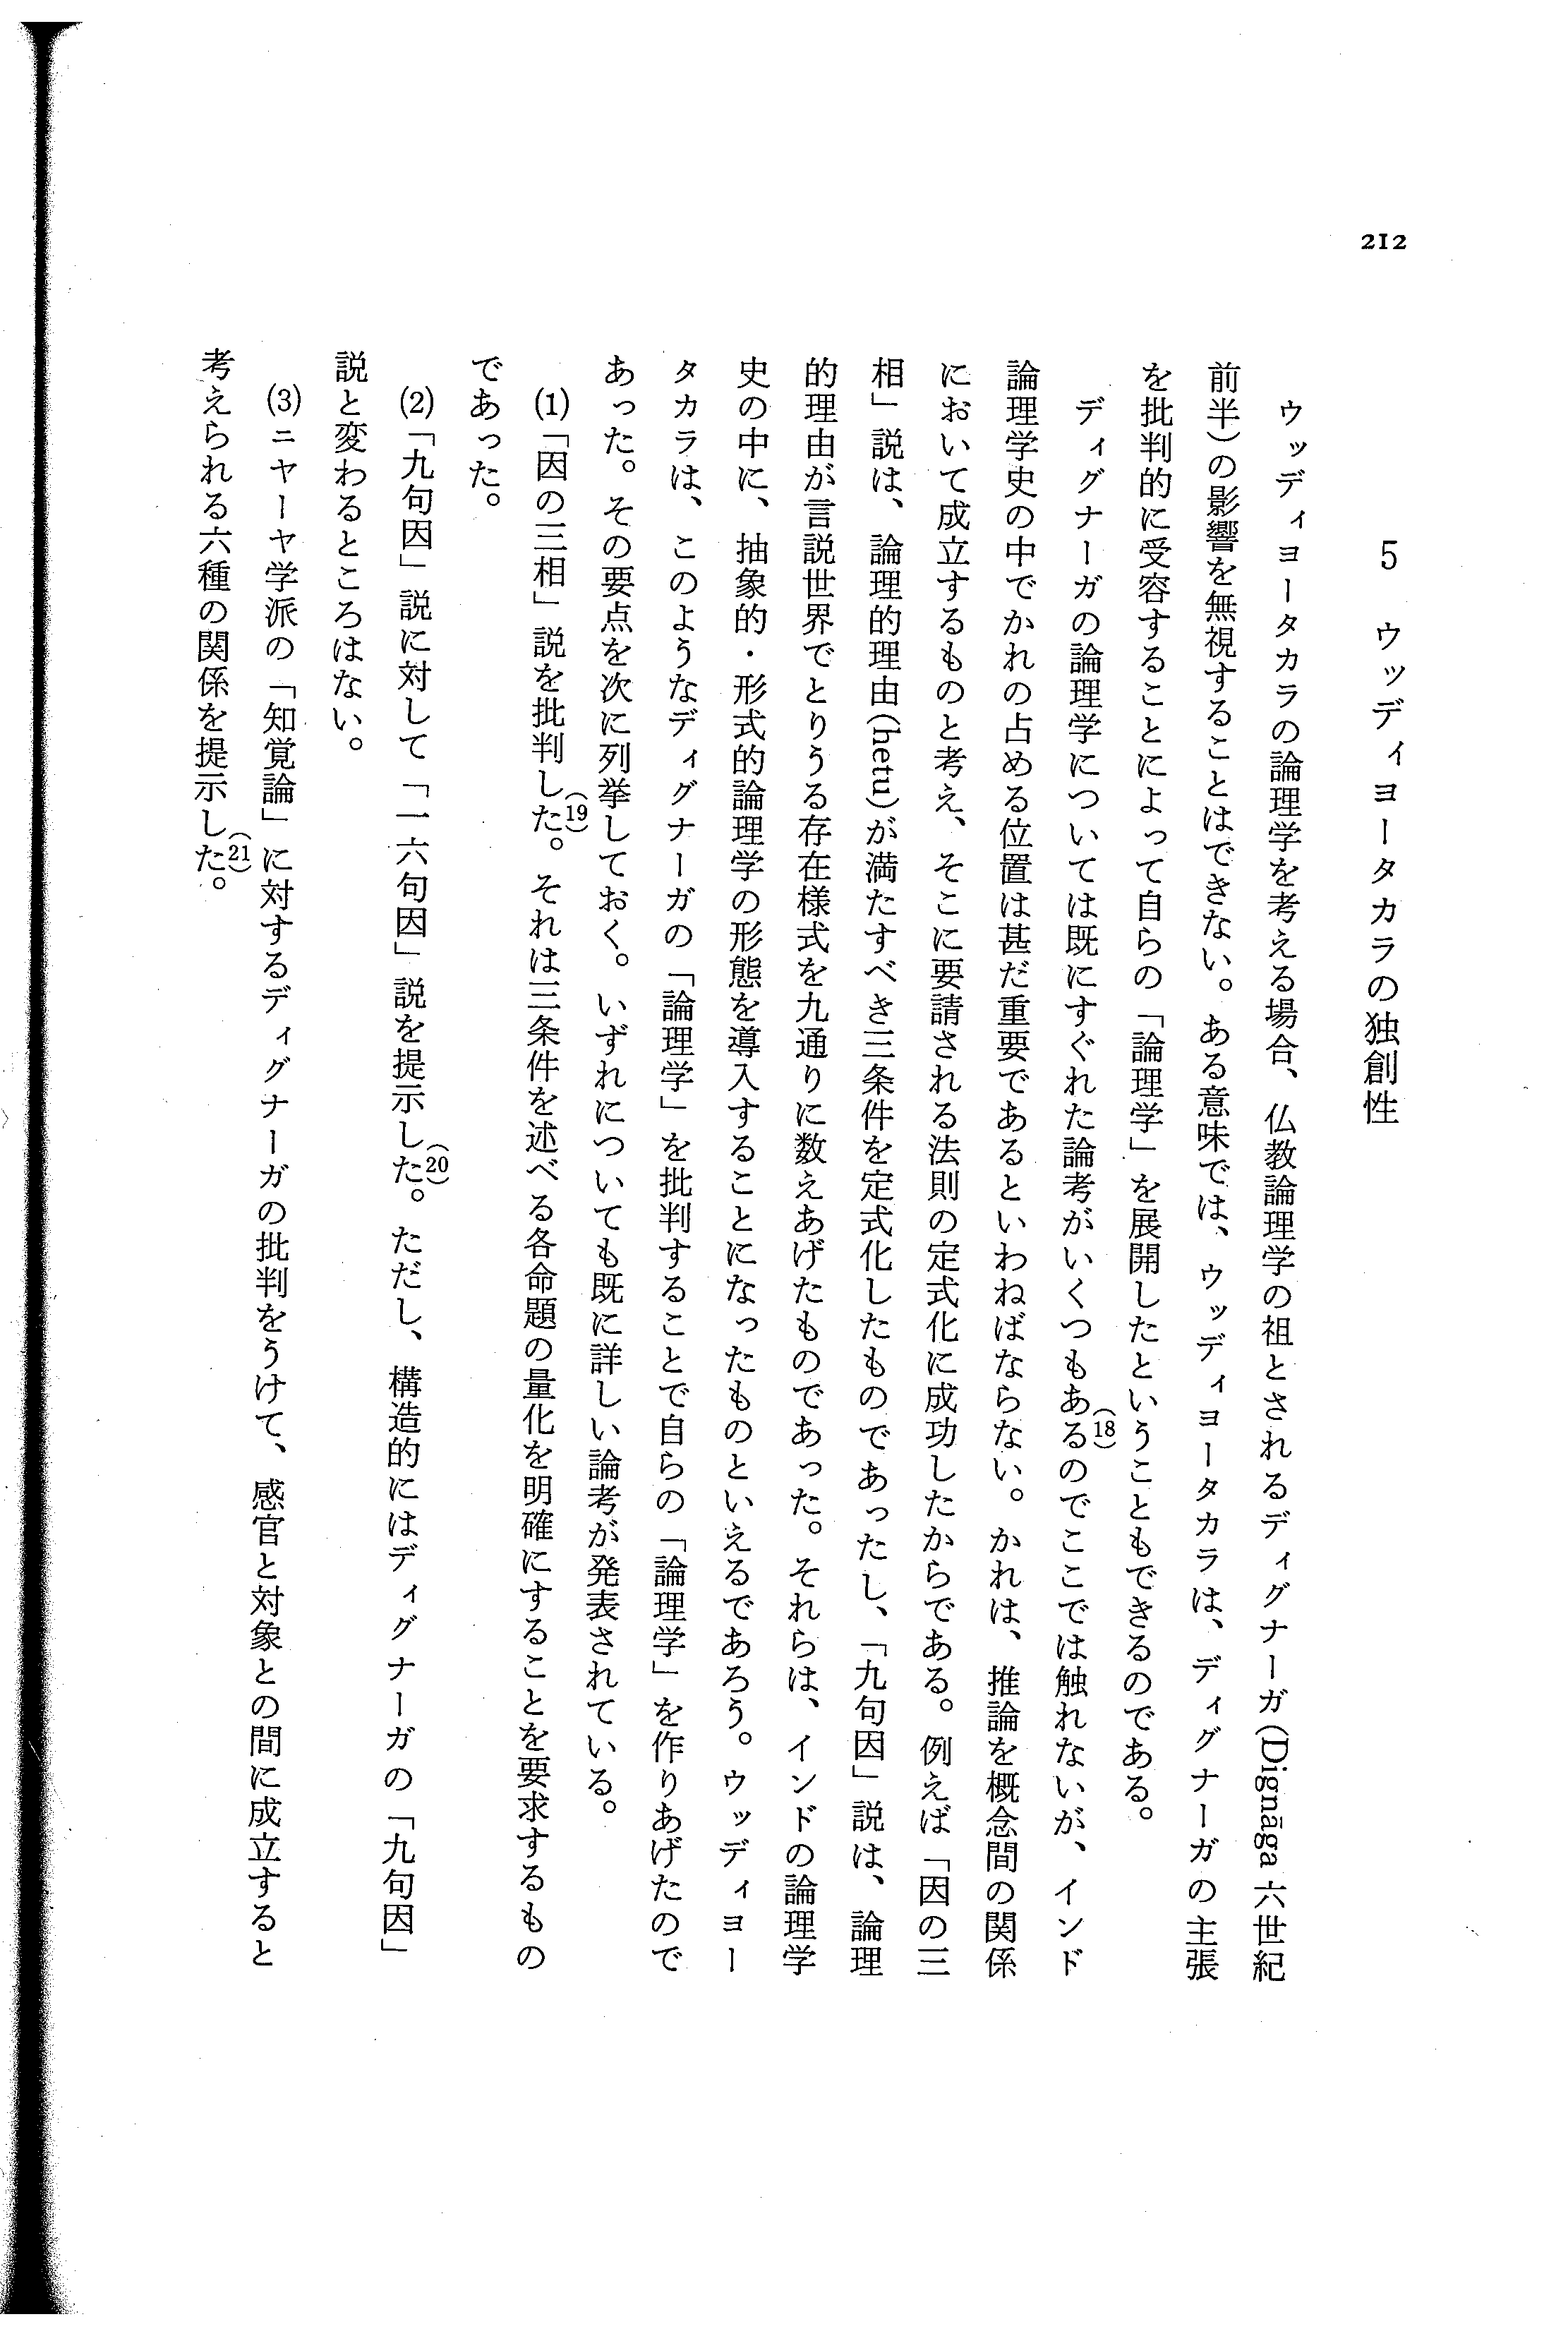 212
5 ウッディヨータカラの独創性
ウッディヨータカラの論理学を考える場合、仏教論理学の祖とされるディグナーガ(Dignāga 六世紀
前半)の影響を無視することはできない。ある意味では、ウッディヨータカラは、ディグナーガの主張
を批判的に受容することによって自らの「論理学」を展開したということもできるのである。
ディグナーガの論理学については既にすぐれた論考がいくつもある(18)のでここでは触れないが、インド
論理学史の中でかれの占める位置は甚だ重要であるといわねばならない。かれは、推論を概念間の関係
において成立するものと考え、そこに要請される法則の定式化に成功したからである。例えば「因の三
相」説は、論理的理由(hetu)が満たすべき三条件を定式化したものであったし、「九句因」説は、論理
的理由が言説世界でとりうる存在様式を九通りに数えあげたものであった。それらは、インドの論理学
史の中に、抽象的・形式的論理学の形態を導入することになったものといえるであろう。ウッディヨー
タカラは、このようなディグナーガの「論理学」を批判することで自らの「論理学」を作りあげたので
あった。その要点を次に列挙しておく。いずれについても既に詳しい論考が発表されている。
(1)「因の三相」説を批判した(19)。それは三条件を述べる各命題の量化を明確にすることを要求するもの
であった。
(2)「九句因」説に対して「一六句因」説を提示した(20)。ただし、構造的にはディグナーガの「九句因」
説と変わるところはない。
(3)ニヤーヤ学派の「知覚論」に対するディグナーガの批判をうけて、感官と対象との間に成立すると
考えられる六種の関係を提示した(21)。